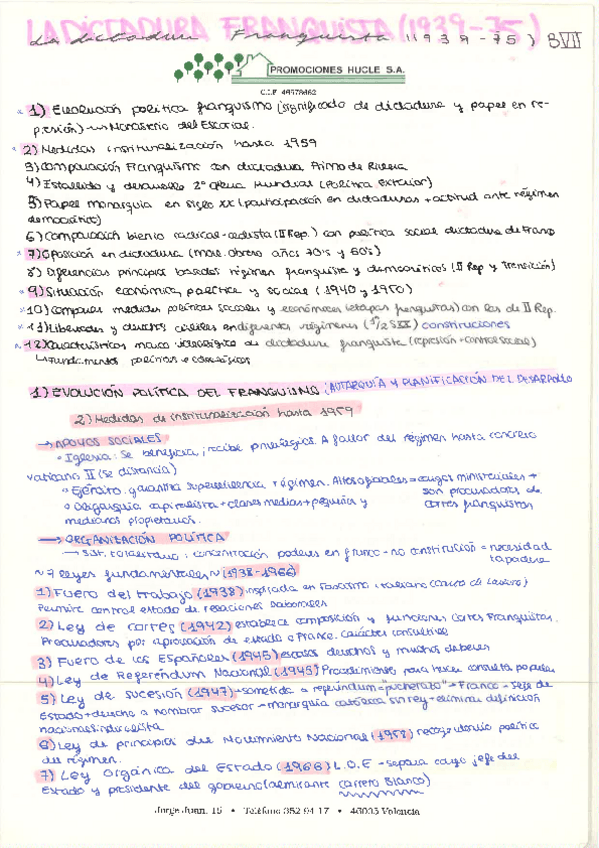 LA DICTADURA FRANQUISTA (1939-75)
La dictadura Franquista (1939-75) BVII
PROMOCIONES HUCLE S.A.
C.I.F.
1) Evolución política franquismo (significado de dictadura y papel en re-
presión) → Monasterio del Escorial.
2) Medidas institucionalización hasta 1959
3) Comparación Franquismo con dictadura Primo de Rivera
4) Estallido y desarrollo 2ª Guerra Mundial (Política Exterior)
5) Papel monarquía en siglo XX (participación en dictaduras + actitud ante régimen
democrático)
6) Comparación bienio radical-cedista (II Rep.) con política social dictadura de Franco
7) Oposición en dictadura (mov. obrero años 70's y 60's)
8) Diferencias principios basados régimen franquista y democráticos (II Rep y Transición)
9) Situación económica, política y social (1940 y 1950)
10) Comparar medidas políticas sociales y económicas (etapas franquistas) con las de II Rep.
11) Libertades y derechos civiles en diferentes regímenes (1/2 S.XX) constituciones
12) Características marco ideológico de dictadura franquista (represión + control social)
↳ fundamentos políticos e ideológicos
1) EVOLUCIÓN POLÍTICA DEL FRANQUISMO: AUTARQUÍA Y PLANIFICACIÓN DEL DESARROLLO
2) Medidas de institucionalización hasta 1959
→ APOYOS SOCIALES
◦ Iglesia: Se beneficia, recibe privilegios. A favor del régimen hasta concilio
Vaticano II (se distancia)
◦ Ejército: garantiza supervivencia régimen. Altos oficiales = cargos ministeriales +
son procuradores de
◦ Oligarquía capitalista + clases medias + pequeños y cortes franquistas
medianos propietarios.
→ ORGANIZACIÓN POLÍTICA
→ Sist. totalitario: concentración poderes en Franco - no constitución = necesidad
tapadera
~ 7 leyes fundamentales ~ (1938-1966)
1) Fuero del trabajo (1938) inspirada en fascismo italiano (Carta de Lavoro)
Permite control estado de relaciones laborales
2) Ley de cortes (1942) establece composición y funciones Cortes Franquistas.
Procuradores por aprobación de estado o Franco. Carácter consultivo
3) Fuero de los Españoles (1945) escasos derechos y muchos deberes
4) Ley de Referéndum Nacional (1945) Procedimiento para hacer consulta popular
5) Ley de Sucesión (1947) → sometida a referéndum = "pucherazo" → Franco → Jefe de
Estado + derecho a nombrar sucesor → monarquía católica sin rey + elimina definición
nacionalsindicalista
6) Ley de principios del Movimiento Nacional (1958) recoge ideario político
del régimen.
7) Ley Orgánica del Estado (1966) L.O.E → separa cargo jefe del
Estado y presidente del gobierno (almirante Carrero Blanco)
Jorge Juan, 15 • Teléfono 352 04 17 • 46035 Valencia